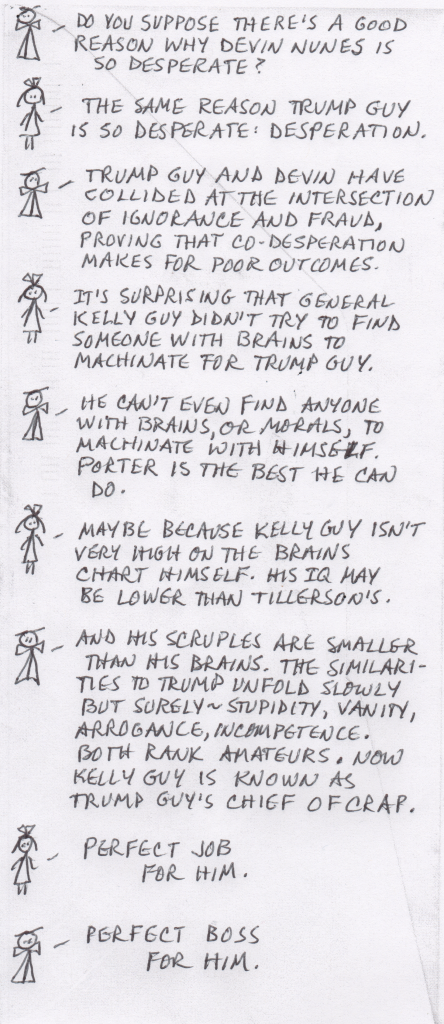 DO YOU SUPPOSE THERE'S A GOOD
REASON WHY DEVIN NUNES IS
SO DESPERATE?
THE SAME REASON TRUMP GUY
IS SO DESPERATE: DESPERATION.
TRUMP GUY AND DEVIN HAVE
COLLIDED AT THE INTERSECTION
OF IGNORANCE AND FRAUD,
PROVING THAT CO-DESPERATION
MAKES FOR POOR OUTCOMES.
IT'S SURPRISING THAT GENERAL
KELLY GUY DIDN'T TRY TO FIND
SOMEONE WITH BRAINS TO
MACHINATE FOR TRUMP GUY.
HE CAN'T EVEN FIND ANYONE
WITH BRAINS, OR MORALS, TO
MACHINATE WITH HIMSELF.
PORTER IS THE BEST HE CAN
DO.
MAYBE BECAUSE KELLY GUY ISN'T
VERY HIGH ON THE BRAINS
CHART HIMSELF. HIS IQ MAY
BE LOWER THAN TILLERSON'S.
AND HIS SCRUPLES ARE SMALLER
THAN HIS BRAINS. THE SIMILARI-
TIES TO TRUMP UNFOLD SLOWLY
BUT SURELY~STUPIDITY, VANITY,
ARROGANCE, INCOMPETENCE.
BOTH RANK AMATEURS. NOW
KELLY GUY IS KNOWN AS
TRUMP GUY'S CHIEF OF CRAP.
PERFECT JOB
FOR HIM.
PERFECT BOSS
FOR HIM.